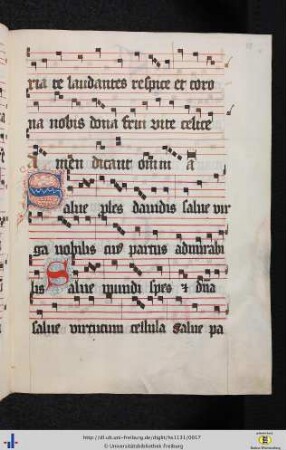 ria te laudantes respice et coro
na nobis dona frui vite celice
A men dicant omni a
Salue ples dauidis salue vir
ga nobilis cui partus admirabi
lis Salue mundi spes & dna
salue virtutum cellula Salue pa
http://dl.ub.uni-freiburg.de/diglit/hs1131/0057
© Universitätsbibliothek Freiburg